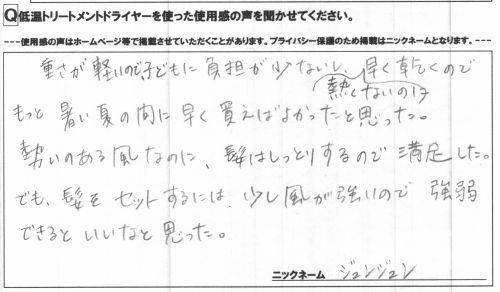 Q低温トリートメントドライヤーを使った使用感の声を聞かせてください。
----使用感の声はホームページ等で掲載させていただくことがあります。プライバシー保護のため掲載はニックネームとなります。---
重さが軽いので、子どもに負担が少ないし、早く乾くので
熱くないのは
もっと暑い夏の間に早く買えばよかったと思った。
勢いのある風なのに、髪はしっとりするので満足した。
でも、髪をセットするには、少し風が強いので強弱
できるといいなと思った。
ニックネーム ジュンジュン